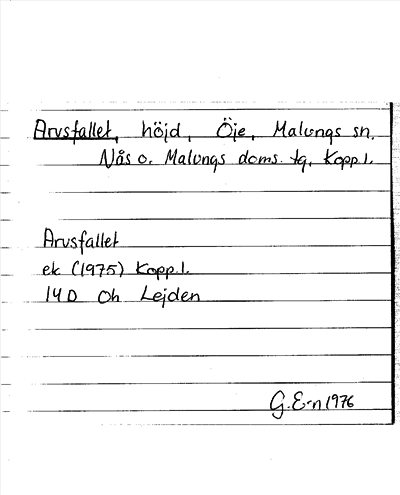 Arvsfallet, höjd, Öje, Malungs sn,
Nås o. Malungs doms. tg, Kopp. l.
Arvsfallet
ek (1975) Kopp. l.
14 D Oh Lejden
G. E-n 1976